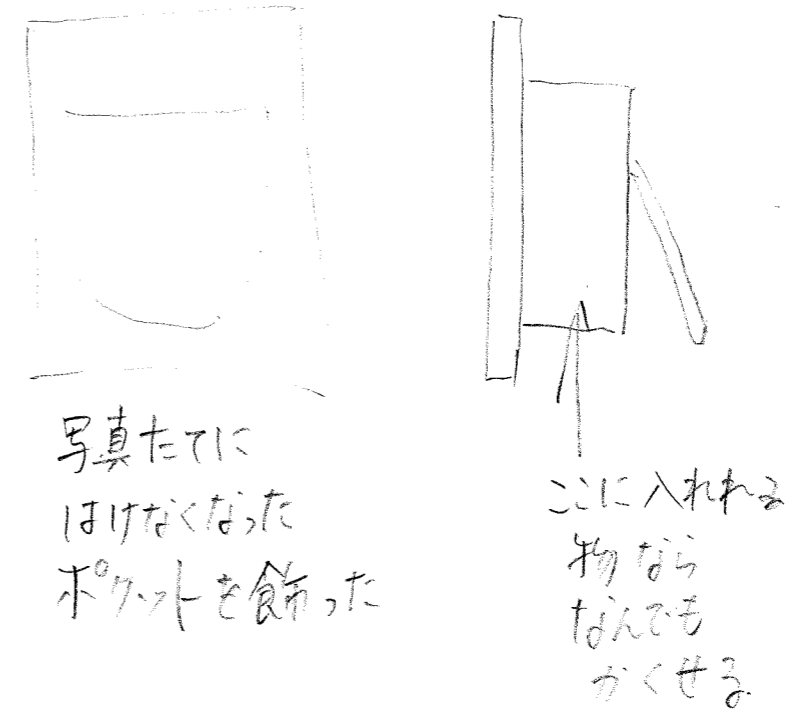 写真たてに
はけなくなった
ポケットを飾った
ここに入れれる
物なら
なんでも
かくせる